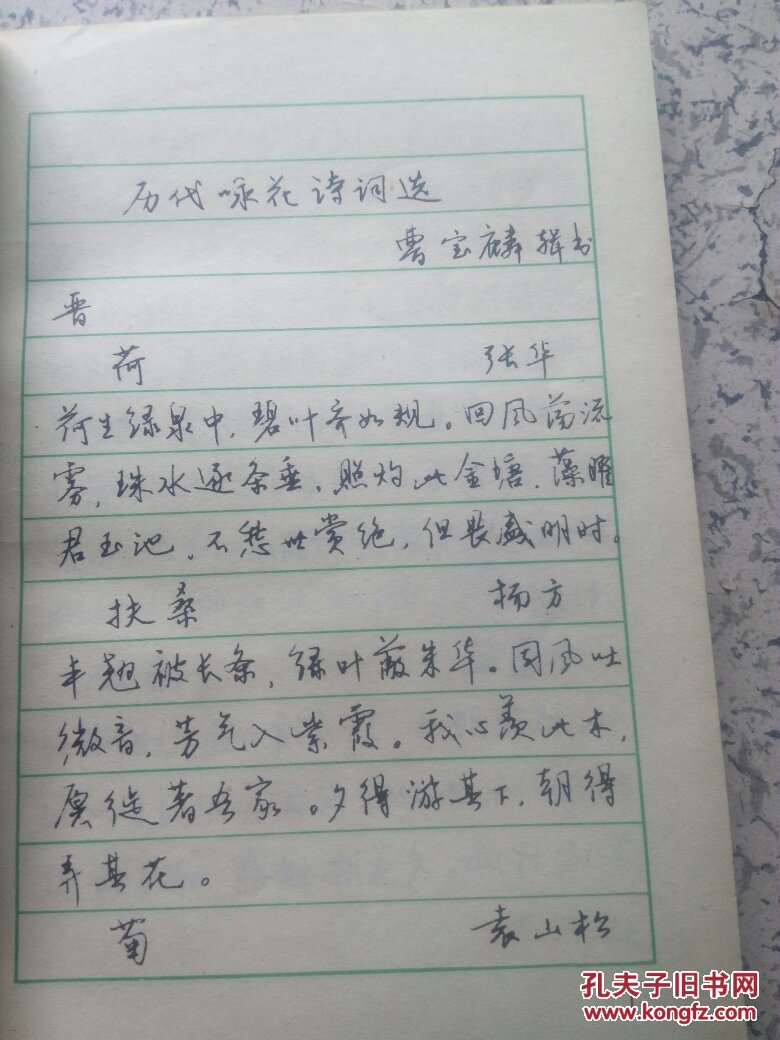 历代咏花诗词选
曹宝麟辑书
晋
荷 张华
荷生绿泉中，碧叶齐如规。回风荡流
雾，珠水逐条垂。照灼此金塘，藻曜
君玉池。不愁世赏绝，但畏盛明时。
扶桑 杨方
丰翘被长条，绿叶蔽朱华。因风吐
微音，芳气入紫霞。我心羡此木，
愿徙著吾家。夕得游其下，朝得
弄其花。
菊 袁山松
孔夫子旧书网
www.kongfz.com